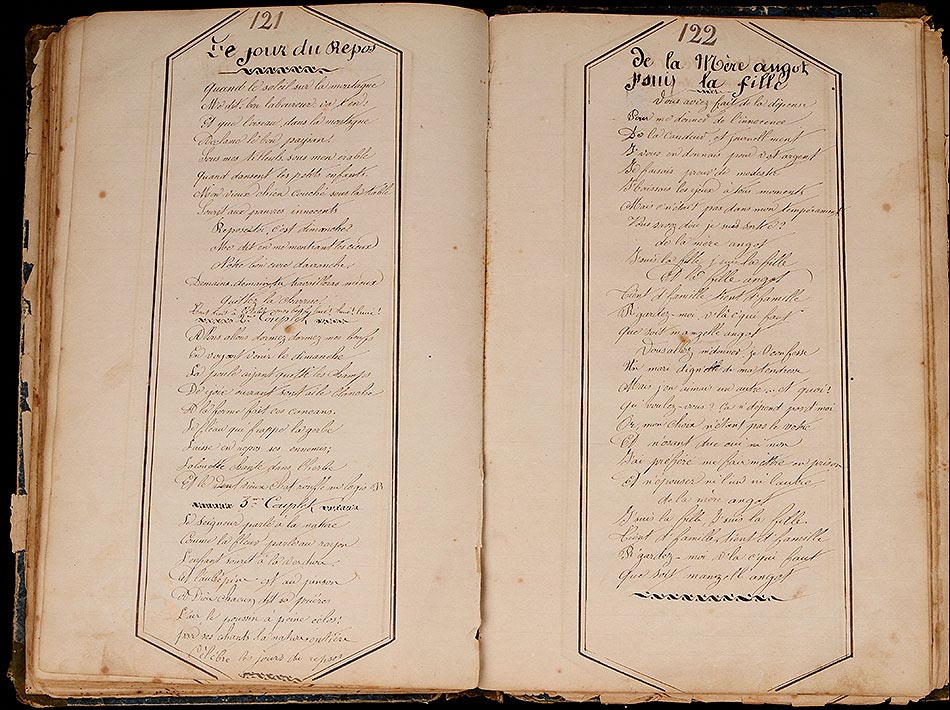 121
Le jour du Repos
Quand le soleil sur la montagne
Me dit bon laboureur va t'en!
Et que l'oiseau dans la montagne
Réclame le bon paysan.
Sous mes tilleuls sous mon érable
quand dansent les petits enfants.
Mon vieux chien couché sous la table
Sourit aux pauvres innocents
Reposez-vous, c'est dimanche
Me dit en me montrant les cieux
Notre bon curé
Demain, demain, tu travailleras mieux
quittez la charrue
2me Couplet
dormez dormez mes bœufs
En voyant venir le dimanche
La poule ayant quitté les champs
De joie ouvrant son aile blanche
A la ferme fait ces cancans.
Le fléau qui frappe la gerbe
Laisse en repos ses ennemis;
L'alouette chante dans l'herbe
Et le vieux chat ronfle au logis
3me Couplet
Le Seigneur parle à la nature
Comme la fleur parle au rayon
L'enfant sourit à la verdure
Et l'aubépine est au
A Dieu chacun dit sa prière
le poussin à peine éclos!
par ses chants la nature entière
Célèbre les jours du repos
122
de la Mère angot
j'suis la fille
Vous aviez fait de la dépense
Pour me donner de l'innocence
De la candeur et journellment
J'vous en donnais pour vot argent
Je faisais preuve de modestie
J'baissais les yeux à tous moments
Mais c'n'était pas dans mon tempérament
Vous savez d'ou je suis sortie?
de la mère angot
J'suis la fille j'suis la fille
Et la fille angot
Tient d'famille tient d'famille
R'gardez-moi v'la c'qui faut
Que soit mamzelle angot
Vous alliez m'donner je l'confesse
Un mari digne de ma tendresse
Mais j'en aimais un autre.. et quoi!
Qu'voulez-vous? Ca n'dépend pas d'moi
Or, mon choix n'étant pas le votre
Et n'osant dire oui ni non
J'ai préféré me fair mettre en prison
Et n'épouser ni l'un ni l'autre
de la mère angot
J'suis la fille J'suis la fille
Tient d'famille, tient d'famille
R'gardez-moi v'la c'qui faut
Que soit manzell angot